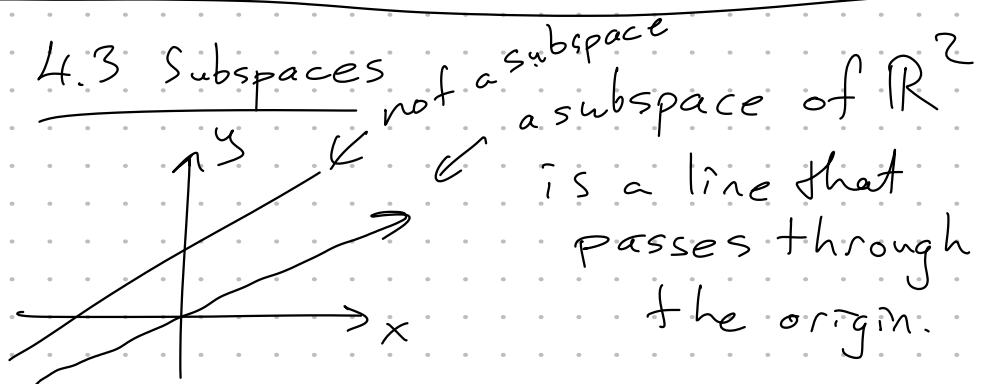 4.3 Subspaces
not a subspace
a subspace of ℝ²
is a line that
passes through
the origin.
y
x